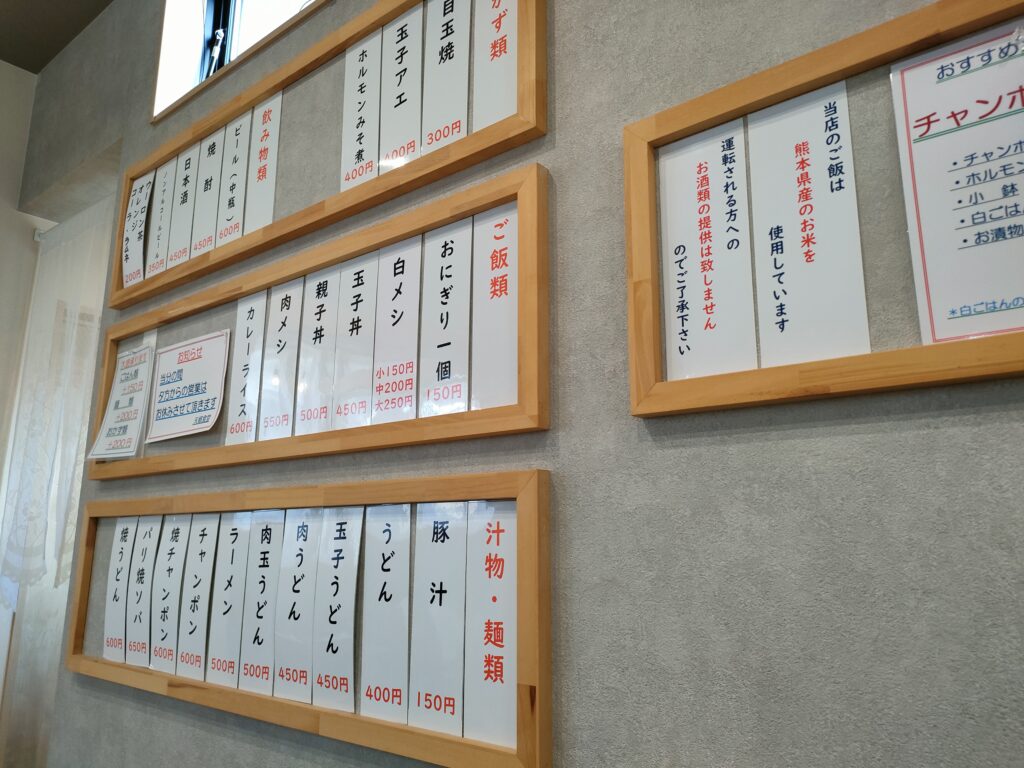 かず類
目玉焼
300円
玉子アエ
400円
ホルモンみそ煮
400円
飲み物類
ビール(中瓶)
600円
焼酎
450円
日本酒
450円
ノンアルコールビール
350円
ウーロン茶
オレンジ
コーラ、ラムネ
200円
ご飯類
おにぎり一個
150円
白メシ
小150円
中200円
大250円
玉子丼
450円
親子丼
500円
肉メシ
550円
カレーライス
600円
お知らせ
当分の間
夕方からの営業は
お休みさせて頂きます
ごはん類
+150円
麺類
+200円
おかず類
+200円
汁物・麺類
豚汁
150円
うどん
400円
玉子うどん
450円
肉うどん
450円
肉玉うどん
500円
ラーメン
500円
チャンポン
600円
焼チャンポン
600円
バリ焼ソバ
650円
焼うどん
600円
当店のご飯は
熊本県産のお米を
使用しています
運転される方への
お酒類の提供は致しません
のでご了承下さい
おすすめ
チャンポ
・チャンポ
・ホルモン
・小鉢
・白ごはん
・お漬物
*白ごはんの